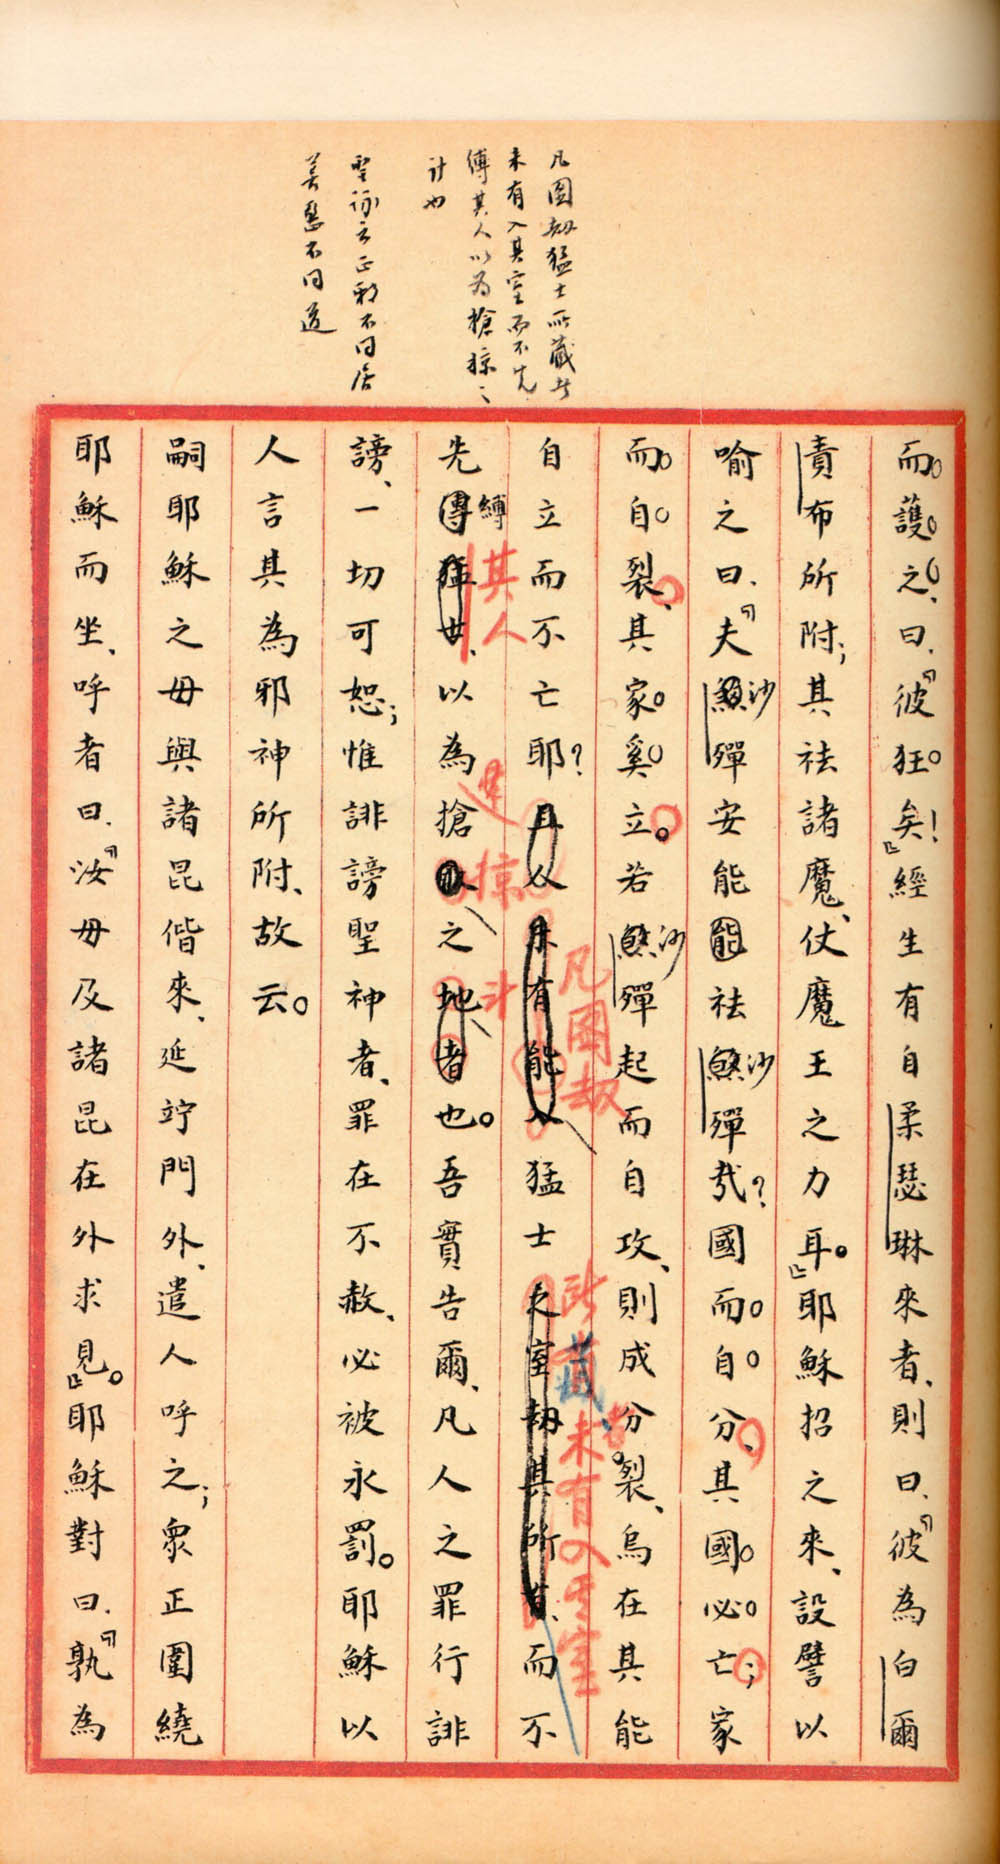 凡圖劫猛士所藏者
未有入其室而不先
縛其人以為搶掠之
計也
聖詠云正邪不同居
善惡不同道
而護之、曰、『彼狂矣!』經生有自柔瑟琳來者、則曰、『彼為白爾
責布所附;其祛諸魔、仗魔王之力耳。』耶穌招之來、設譬以
喻之曰、『夫沙殫安能祛沙殫哉?國而自分、其國必亡;家
而自裂、其家奚立。若沙殫起而自攻、則成分裂、烏在其能
自立而不亡耶?且人未有能入猛士之室劫其所有、而不
凡圖劫
所藏者未有入其室
先縛猛士、以為搶之地者也。吾實告爾、凡人之罪行誹
其人
掠
計
謗、一切可恕;惟誹謗聖神者、罪在不赦、必被永罰。耶穌以
人言其為邪神所附、故云。
嗣耶穌之母與諸昆偕來、延竚門外、遣人呼之;眾正圍繞
耶穌而坐、呼者曰、『汝母及諸昆在外求見。』耶穌對曰、『孰為